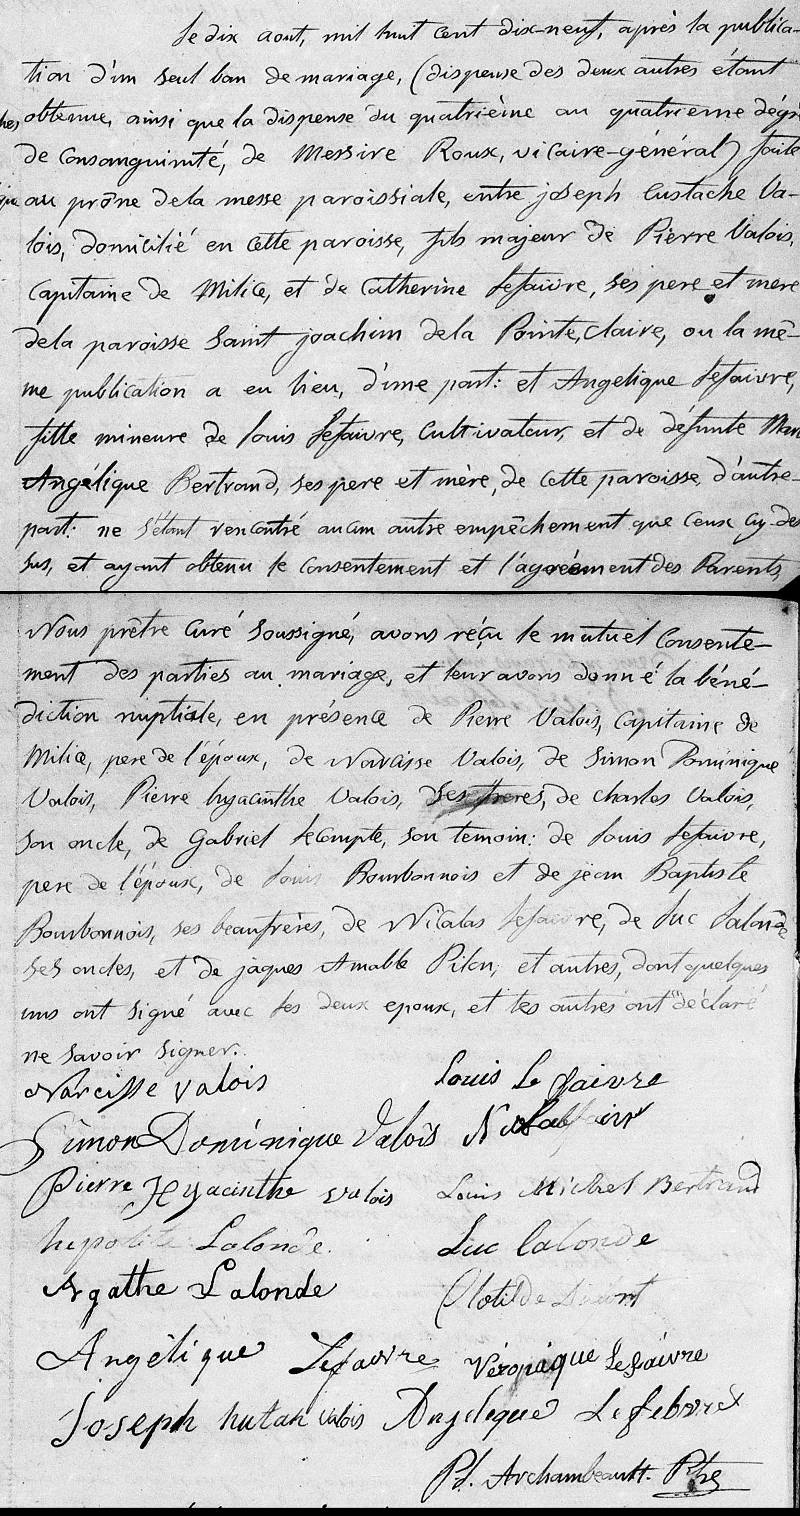 Le dix aout, mil huit cent dix-neuf, après la publica-
tion d'un seul ban de mariage, (dispense des deux autres étant
obtenue, ainsi que la dispense du quatrième au quatrieme dégré
de Consanguinité, de Messire Roux, vicaire-général) faite
au prône dela messe paroissiale, entre joseph Eustache Va-
lois, domicilié en cette paroisse, fils majeur de Pierre Valois,
Capitaine de Milice, et de Catherine Lefaivre, ses pere et mere
dela paroisse Saint joachim dela Pointe, Claire, ou la mê-
me publication a eu lieu, d'une part: et Angelique Lefaivre,
fille mineure de Louis Lefaivre, Cultivateur, et de défunte
Angélique Bertrand, ses pere et mère, de cette paroisse, d'autre-
part: ne s'étant rencontré aucun autre empêchement que ceux cy-des
sus, et ayant obtenu le Consentement et l'agréement des Parents,
Nous prêtre Curé Soussigné, avons réçu le mutuel Consente-
ment des parties au mariage, et leur avons donné la béné-
diction nuptiale, en présence de Pierre Valois, Capitaine de
Milice, pere de l'époux, de Narcisse Valois, de Simon Dominique
Valois, Pierre hyacinthe Valois, ses freres, de Charles Valois,
son oncle, de Gabriel Lecompte, son temoin: de Louis Lefaivre,
pere de l'épouse, de Louis Bourbonnois et de jean Baptiste
Bourbonnois, ses beaufrères, de Nicolas Lefaivre, de Luc Lalonde
ses oncles, et de jaques Amable Pilon; et autres, dont quelques
uns ont signé avec les deux epoux, et les autres ont déclaré
ne savoir signer.
Narcisse Valois Louis Le faivre
Simon Dominique Valois
Pierre Hyacinthe Valois Louis Michel Bertrand
hypolite Lalonde Luc Lalonde
Agathe Lalonde Clotilde
Angélique Lefaivre Véronique Lefaivre
Joseph Valois Angeleque Lefebvre
Pd. Archambeault. Ptre